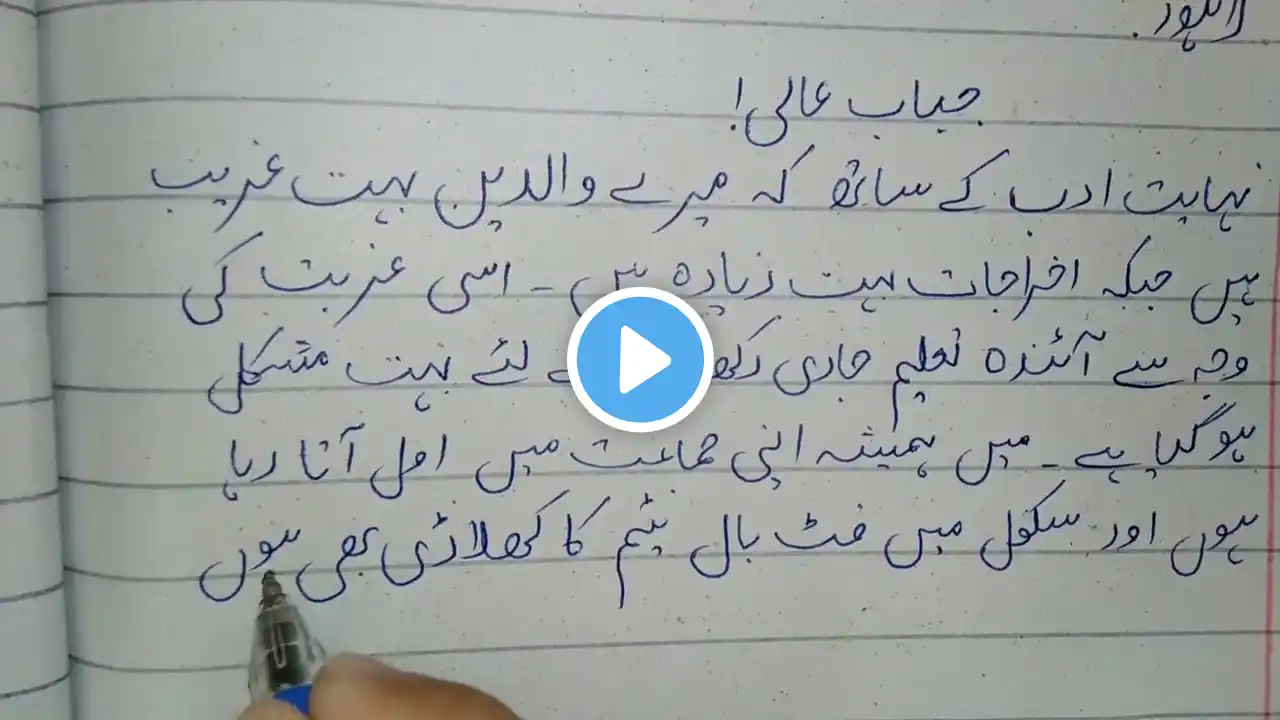 لاہور۔
جناب عالی!
نہایت ادب کے ساتھ کہ میرے والدین بہت غریب
ہیں جبکہ اخراجات بہت زیادہ ہیں ۔ اسی غربت کی
وجہ سے آئندہ تعلیم جاری لئے بہت مشکل
ہوگیا ہے ۔ میں ہمیشہ اپنی جماعت میں اول آتا رہا
ہوں اور سکول میں فٹ بال ٹیم کا کھلاڑی بھی ہوں